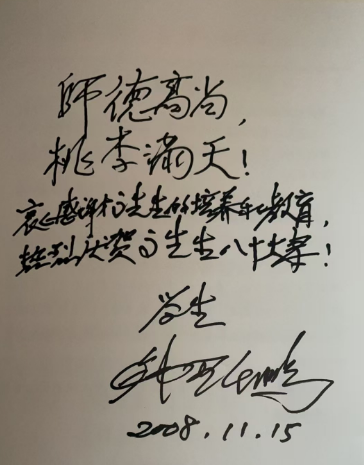 师德高尚，
桃李满天！
衷心感谢方先生的培养和教育，
热烈庆贺方先生八十大寿！
学生
2008.11.15